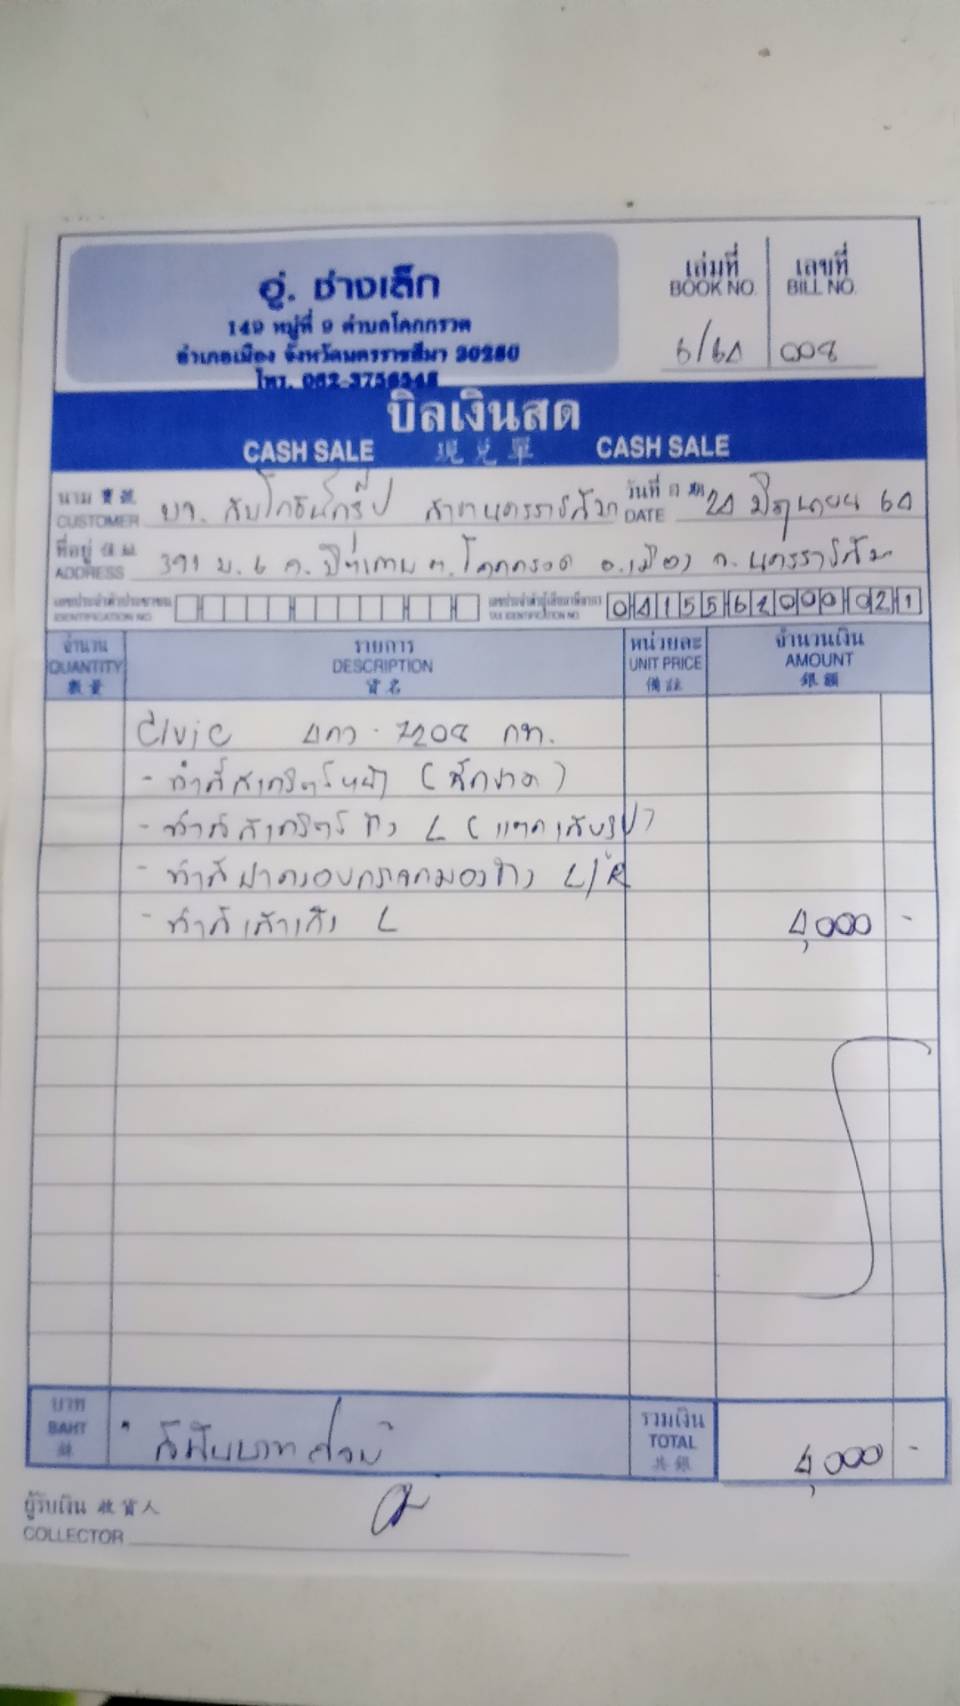 อู่. ช่างเล็ก
149 หมู่ที่ 9 ตำบลโคกกรวด
อำเภอเมือง จังหวัดนครราชสีมา 30280
โทร.
เล่มที่ เลขที่
BOOK NO. BILL NO.
6/64 008
บิลเงินสด
CASH SALE 現兌單 CASH SALE
นาม 寶號 สาขานครราชสีมา วันที่
CUSTOMER บจ. DATE 24 มิถุนายน 64
ที่อยู่
ADDRESS 391 ม.6 ต.โคกกรวด อ.เมือง จ.นครราชสีมา
เลขประจำตัวประชาชน เลขประจำตัวผู้เสียภาษีอากร
IDENTIFICATION NO. TAX IDENTIFICATION NO. 0415562000021
จำนวน รายการ หน่วยละ จำนวนเงิน
QUANTITY DESCRIPTION UNIT PRICE AMOUNT
數量 貨名 備註 銀額
Civic 4กว-7208 กท.
- ทำสีสเกิร์ตหน้า (ฉีกขาด)
- ทำสีสเกิร์ตข้าง L (แตกเสียรูป)
- ทำสีฝาครอบกระจกมองข้าง L/R
- ทำสีเสาเก๋ง L 4,000 -
บาท รวมเงิน
BAHT " สี่พันบาทถ้วน " TOTAL 4,000 -
共銀
ผู้รับเงิน 收貨人
COLLECTOR